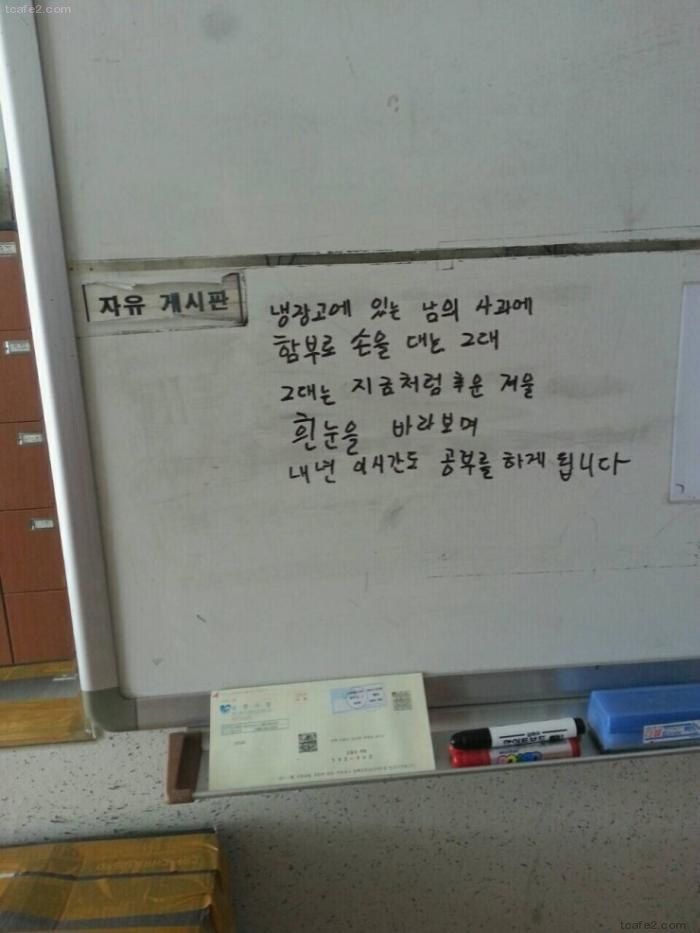 tcafe2.com
자유 게시판
냉장고에 있는 남의 사과에
함부로 손을 대는 그대
그대는 지금처럼 추운 겨울
흰눈을 바라보며
내년 이시간도 공부를 하게 됩니다
tcafe2.com